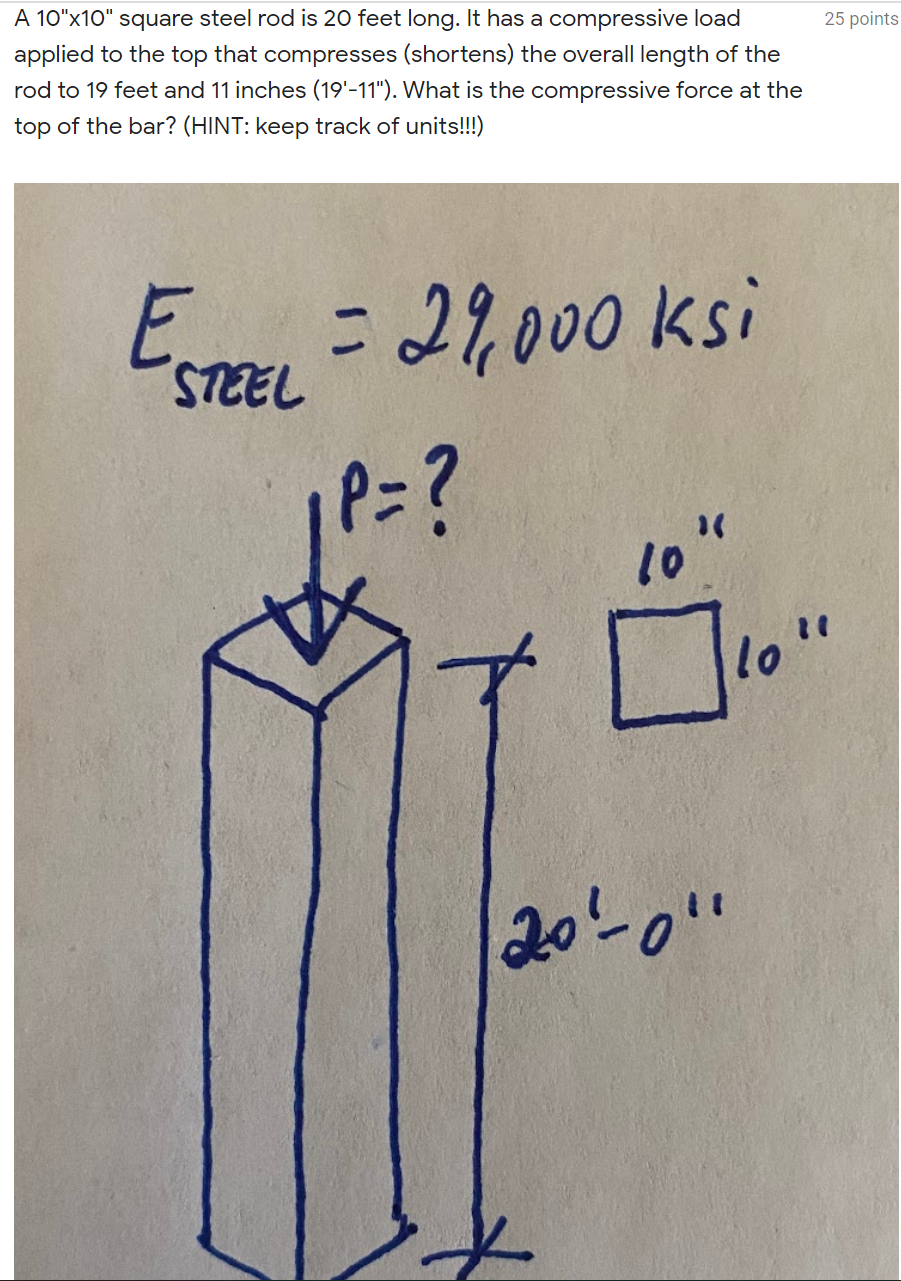 A 10"x10" square steel rod is 20 feet long. It has a compressive load
25 points
applied to the top that compresses (shortens) the overall length of the
rod to 19 feet and 11 inches (19'-11"). What is the compressive force at the
top of the bar? (HINT: keep track of units!!!)
E STEEL = 29,000 ksi
P=?
10"
10"
20'-0"